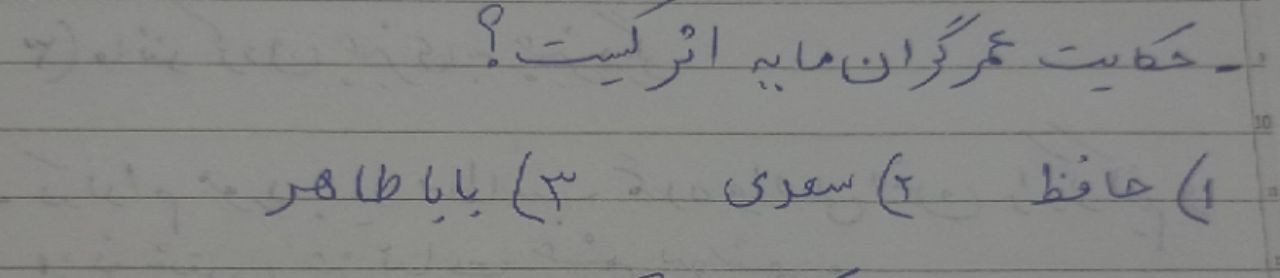 - حکایت عمر گران مایه اثر کیست؟
۱) حافظ ۲) سعدی ۳) بابا طاهر